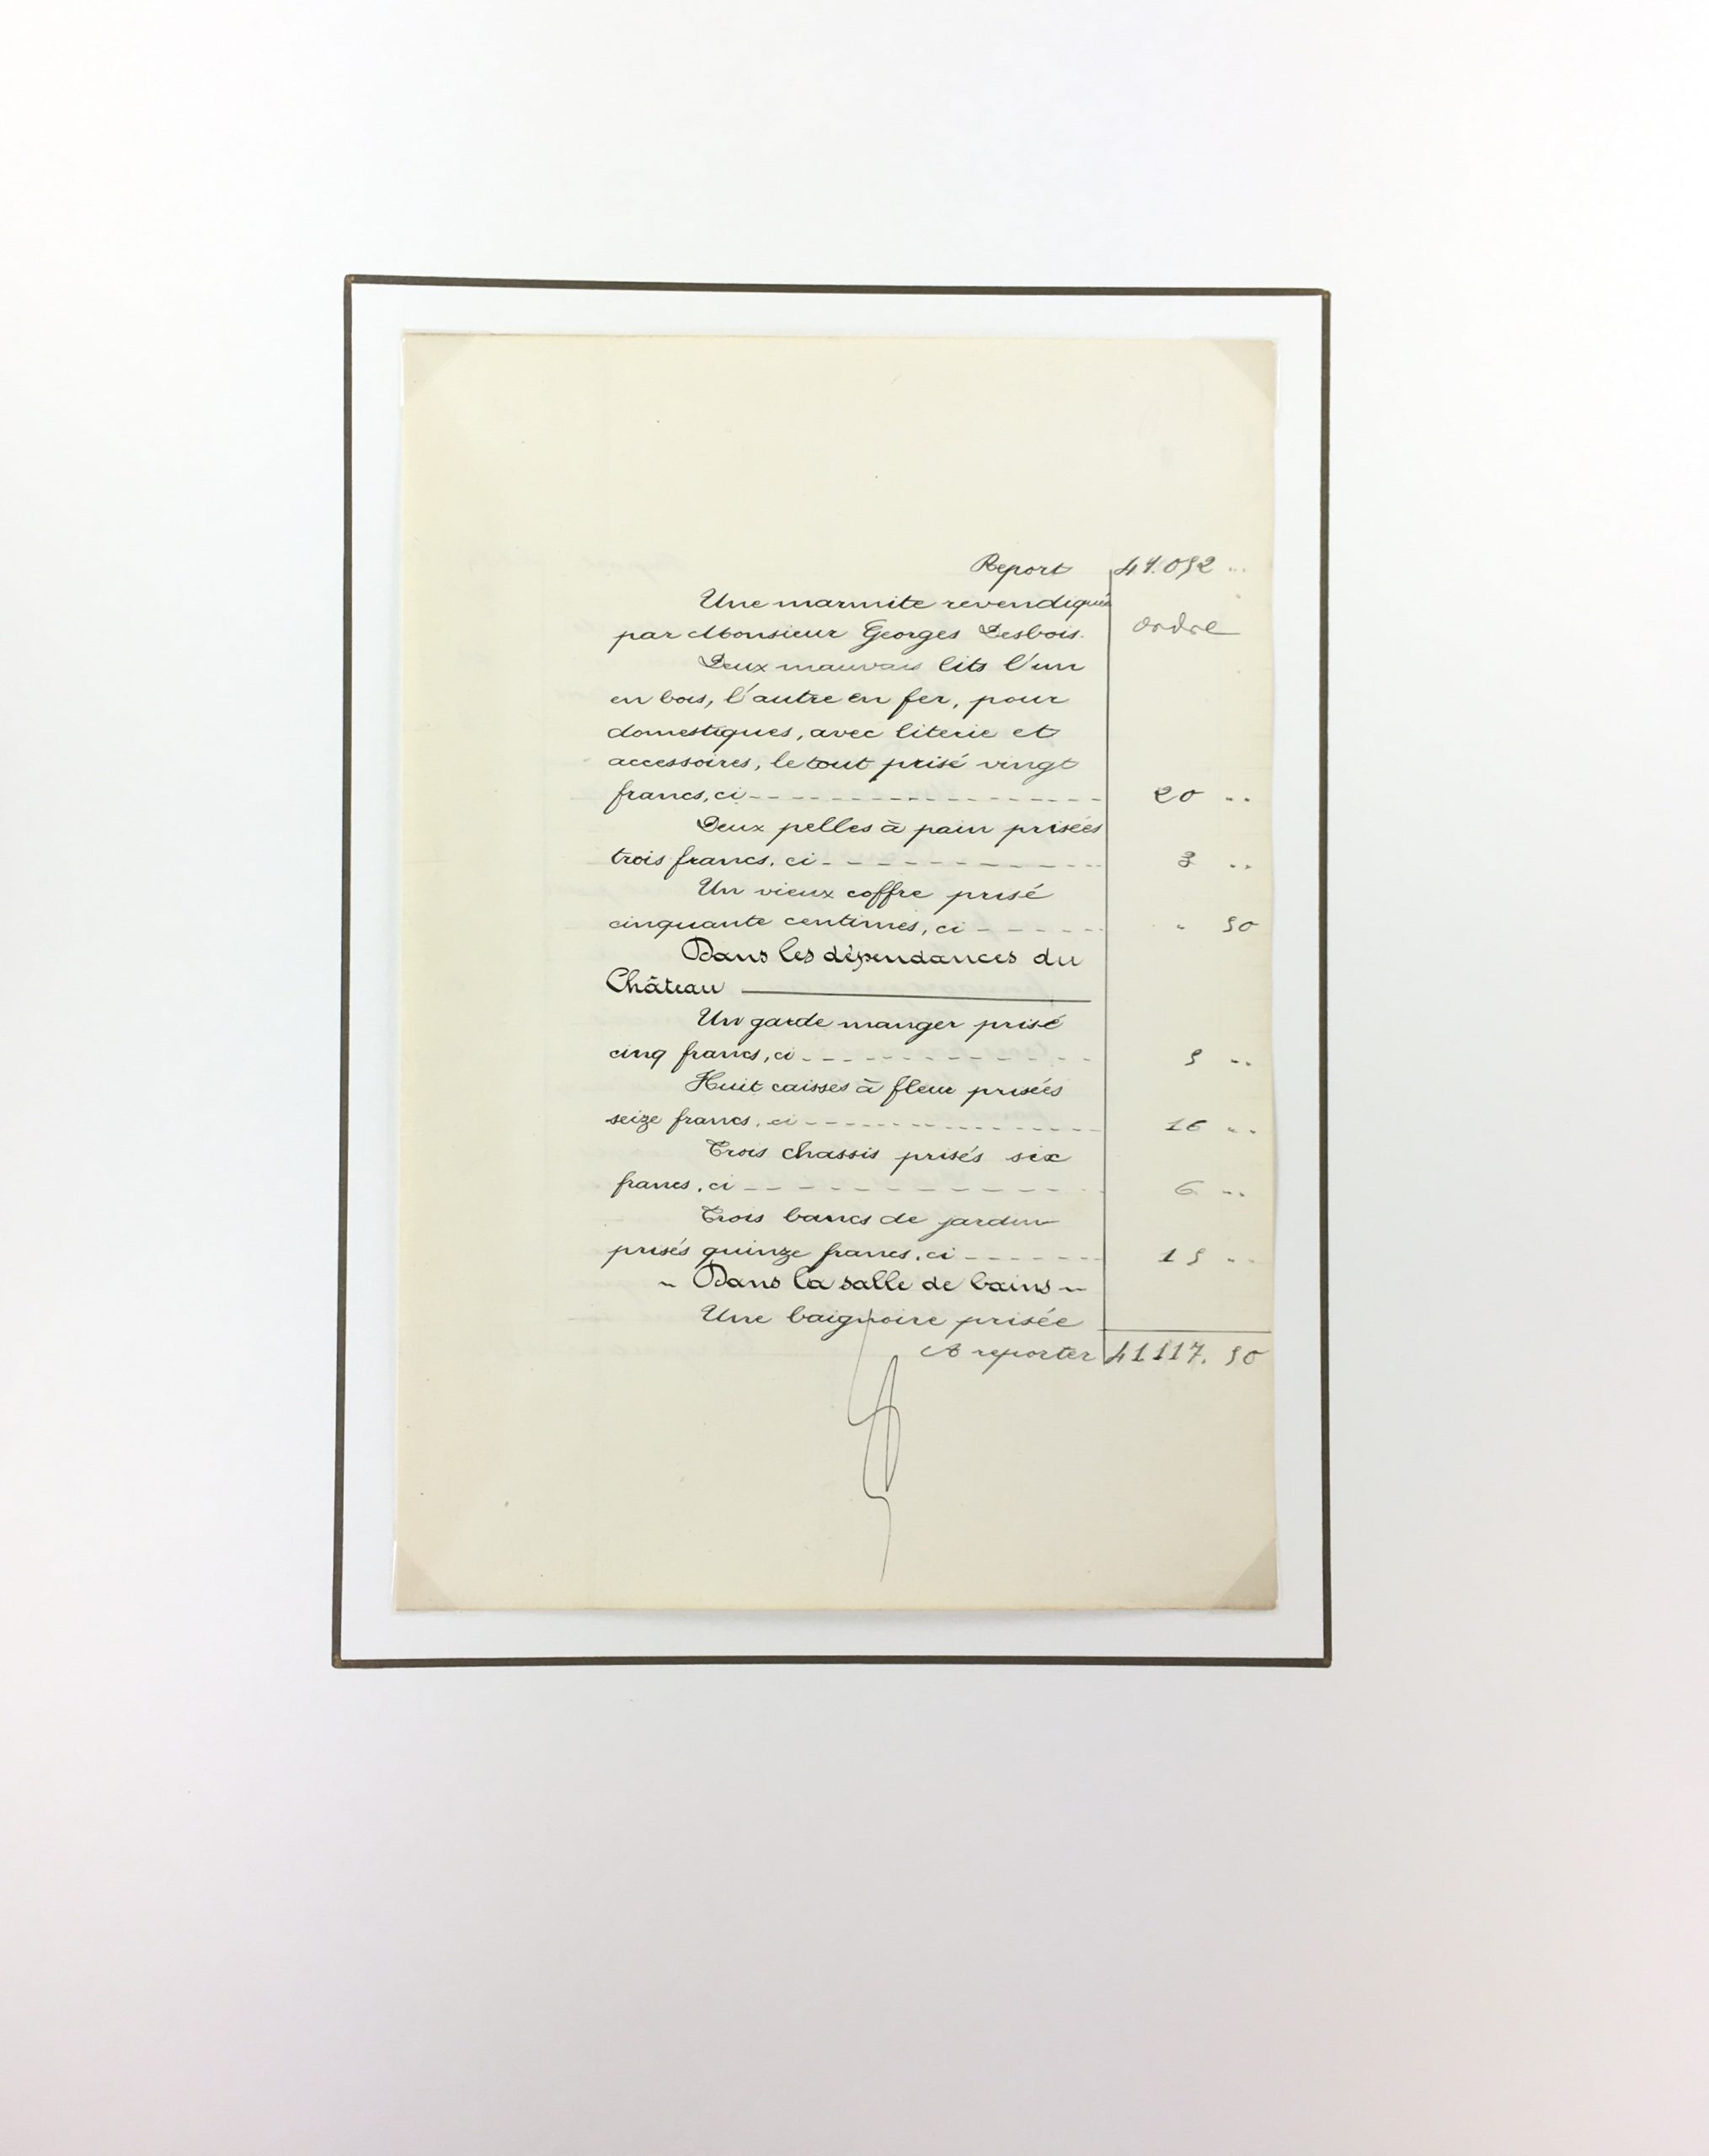 Report 41.052 ..
Une marmite revendiquée
par Monsieur Georges Desbois. ordre
Deux mauvais lits l'un
en bois, l'autre en fer, pour
domestiques, avec literie et
accessoires, le tout prisé vingt
francs, ci ------------------ 20 ..
Deux pelles à pain prisées
trois francs. ci ------------- 3 ..
Un vieux coffre prisé
cinquante centimes, ci ------ " 50
Dans les dépendances du
Château
Un garde manger prisé
cinq francs, ci ------------- 5 ..
Huit caisses à fleur prisées
seize francs. ci ---------------- 16 ..
Trois chassis prisés six
francs. ci ------------- 6 ..
Trois bancs de jardin
prisés quinze francs. ci ------- 15 ..
~ Dans la salle de bains ~
Une baignoire prisée
A reporter 41.117. 50